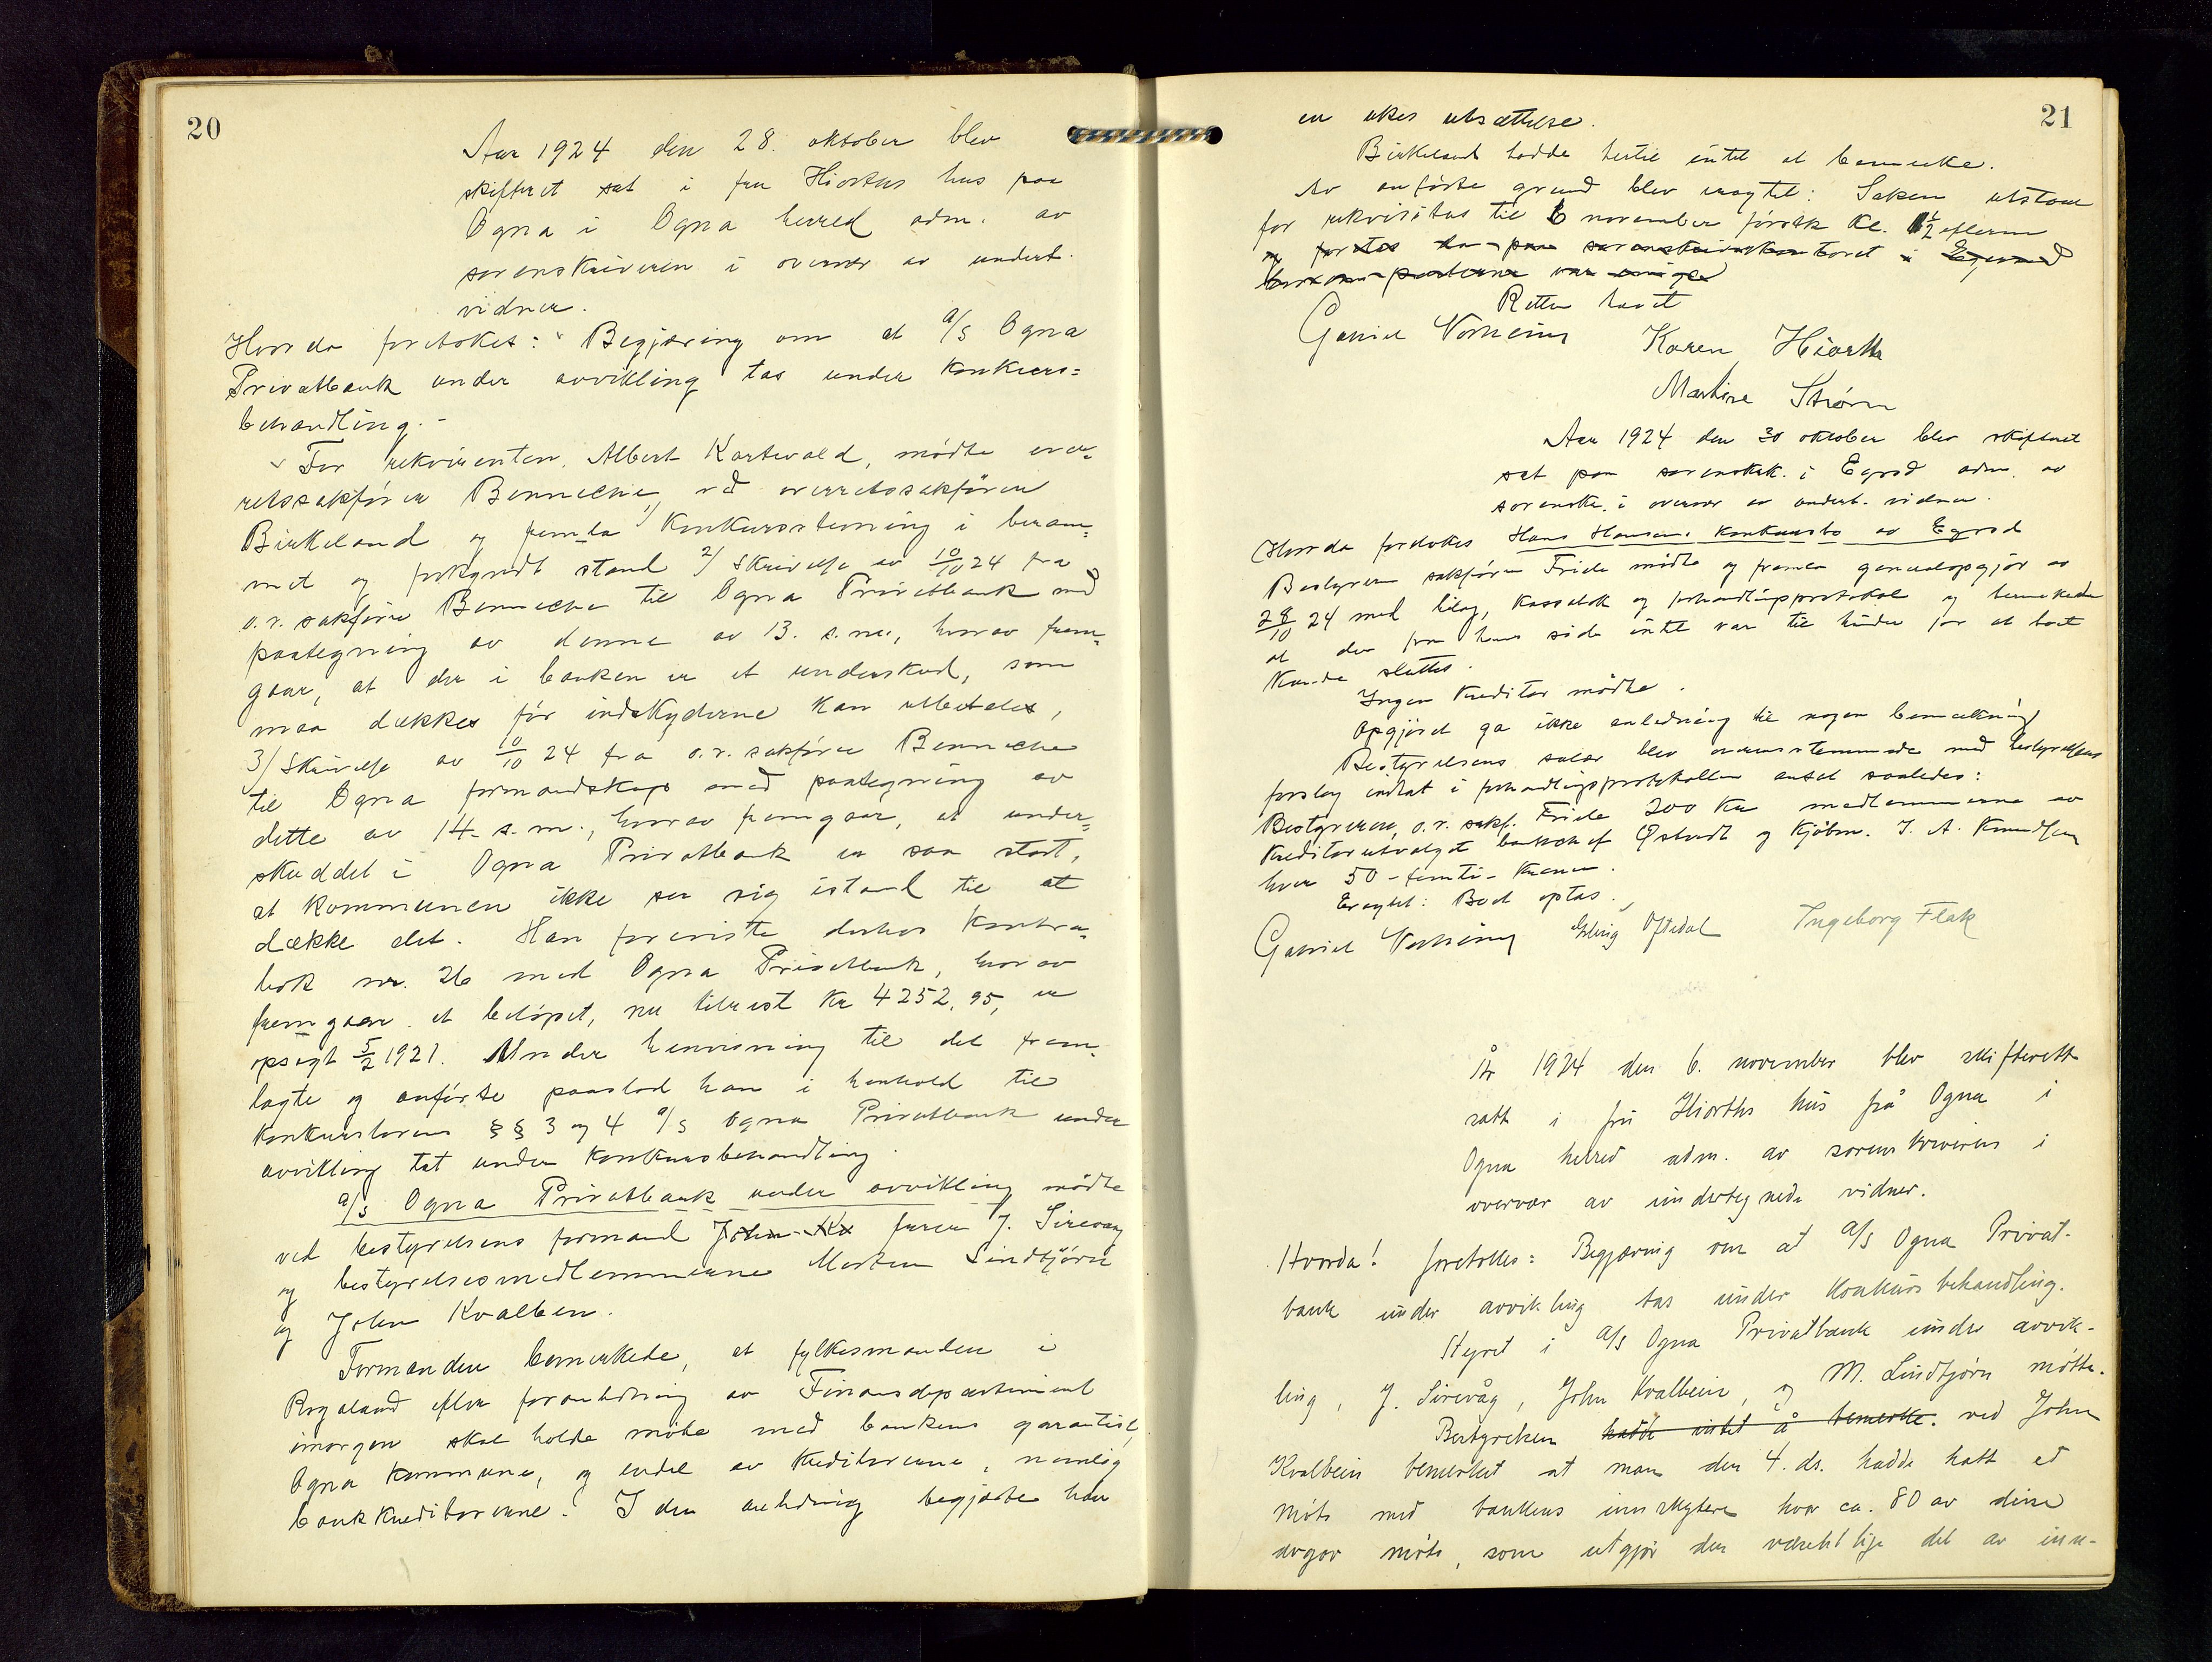 20
Aar 1924 den 28. oktober blev
skifteret sat i fru Hiorths hus paa
Ogna i Ogna herred adm. av
sorenskriveren i overvær av undert.
vidner.
Hvor da foretokes: Begjæring om at A/S Ogna
Privatbank under avvikling tas under konkurs=
behandling.-
For rekvirenten, Albert Kartevold, mødte over=
retssakfører Benneche ved overretssakfører
Birkeland og fremla 1/ Konkursstevning i beram=
met og forkyndt stand 2/ Skrivelse av 10/10 24 fra
o.r. sakfører Benneche til Ogna Privatbank med
paategning av denne av 13. s.m., hvorav frem=
gaar, at der i banken er et underskud, som
maa dækkes før indskyderne kan utbetales,
3/ Skrivelse av 10/10 24 fra o.r. sakfører Benneche
til Ogna formandskap med paategning av
dette av 14. s.m., hvorav fremgaar, at under=
skuddet i Ogna Privatbank er saa stort,
at kommunen ikke ser sig istand til at
dække det. Han foreviste derhos kontra=
bok nr. 26 med Ogna Privatbank, hvorav
fremgaar at beløpet, nu tilrest kr 4252,95, er
opsagt 5/2 1921. Under henvisning til det frem=
lagte og anførte paastod han i henhold til
konkurslovens §§ 3 og 4 A/S Ogna Privatbank under
avvikling tat under konkursbehandling.
A/S Ogna Privatbank under avvikling mødte
ved bestyrelsens formand John Kv J. Sirevaag
og bestyrelsesmedlemmerne Morten Lindtjørn
og John Kvalbein.
Formanden bemerkede, at fylkesmanden i
Rogaland efter foranledning av Finansdepartement
imorgen skal holde møte med bankens garantist,
Ogna kommune, og endel av kreditorerne, nemlig
bankkreditorerne. I den anledning begjærte han
21
en ukes utsættelse.
Birkeland hadde hertil intet at bemerke.
Av anførte grund blev eragtet: Saken utstaar
for rekvisitus til 6 november førstk kl. 1/2 efterm
og foretas da paa sorenskriverkontoret i Egersund
hvorom parterne var enige
Retten hævet
Gabriel Karen Hiorth
Martine Strøm
Aar 1924 den 30 oktober blev skifteret
sat paa sorenskrk. i Egrsd adm. av
sorenskr. i overvær av undert. vidner.
Hvor da foretokes Hans Hansens konkursbo av Egrsd
Bestyreren sakfører Friele mødte og fremla generalopgjør av
28/10 24 med bilag, kassabok og forhandlingsprotokol og bemerkede
at der fra hans side intet var til hinder for at boet
kunde sluttes.
Ingen kreditor mødte.
Opgjøret ga ikke anledning til nogen bemerkning
Bestyrelsens salær blev overensstemmende med bestyrelsens
forslag indtat i forhandlingsprotokollen ansat saaledes:
Bestyreren, o.r. sakf. Friele 200 kr medlemmerne av
kreditorutvalget banksch​ef Østvedt og kjøbm. J. A. Knudsen
hver 50 - femti - kroner.
Eragtet: Boet optas.
Gabriel Erling Oftedal Ingeborg Flak
År 1924 den 6. november blev skifterett
satt i fru Hiorths hus på Ogna i
Ogna herred adm. av sorenskriveren i
overvær av undertegnede vidner.
Hvorda! foretokes: Begjæring om at A/S Ogna Privat-
bank under avvikling tas under konkursbehandling.
Styret i A/S Ogna Privatbank under avvik-
ling, J. Sirevåg, John Kvalbein, og M. Lindtjørn møtte.
Bestyrelsen hadde intet å bemerke. ved John
Kvalbein bemerket at man den 4. ds. hadde hatt et
møte med bankens innskytere hvor ca. 80 av disse
avgav møte, som utgjør den vesentlige del av inn-